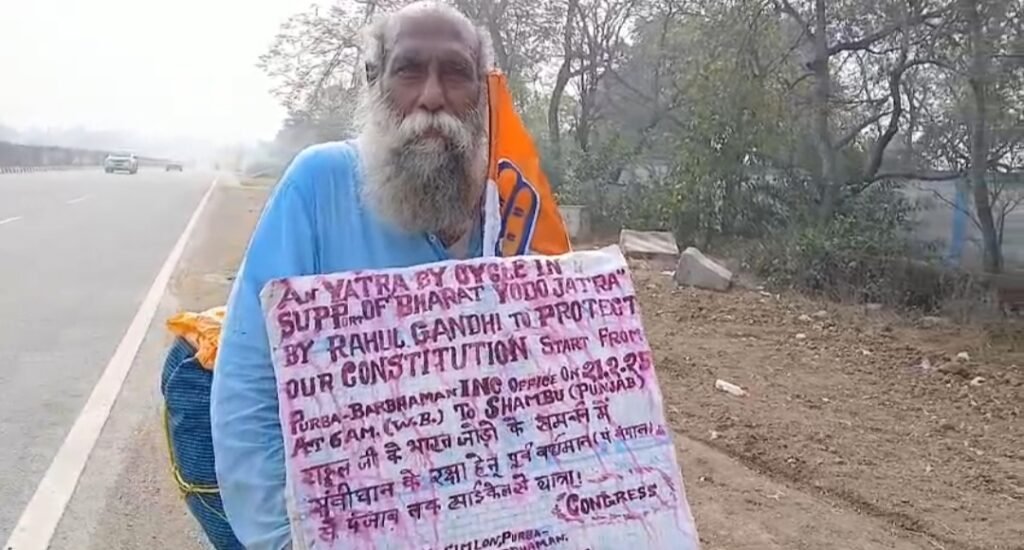 AN YATRA BY CYCLE IN
SUPPORT OF "BHARAT YODO JATRA"
BY RAHUL GANDHI TO PROTECT
OUR CONSTITUTION START FROM
PURBA-BARBHAMAN INC OFFICE ON 21.2.25
AT 6 AM. (W.B.) TO SHAMBU (PUNJAB)
राहुल जी के भारत जोड़ो के समर्थन में
संवीधान के रक्षा हेतु पूर्व वर्धमान (पं बंगाल)
से पंजाब तक साईकल से यात्रा!
"CONGRESS"
SIMLON, PURBA-